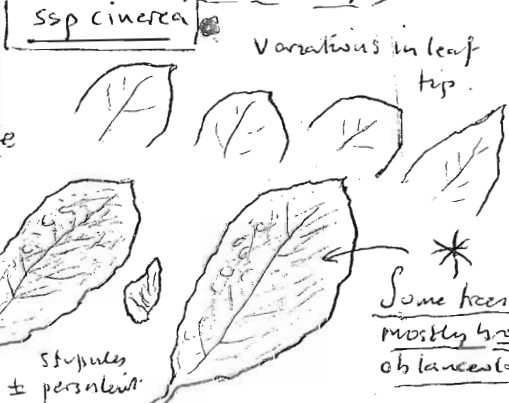 ssp cinerea
Variations in leaf
tip.
e
Some trees
mostly
oblanceola
stipules
± persistent.